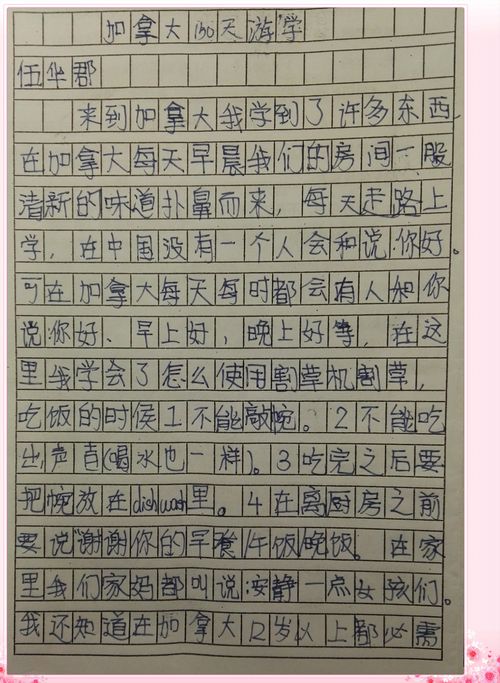 加拿大150天游学
伍华郡
来到加拿大我学到了许多东西,
在加拿大每天早晨我们的房间一股
清新的味道扑鼻而来,每天走路上
学,在中国没有一个人会和说:你好。
可在加拿大每天每时都会有人和你
说:你好、早上好,晚上好等,在这
里我学会了怎么使用割草机割草,
吃饭的时侯1不能敲碗。2不能吃
出声音(喝水也一样)。3吃完之后要
把碗放在dishwash里。4在离厨房之前
要说"谢谢你的早餐/午饭/晚饭。在家
里我们家妈都叫说:安静一点女孩们。
我还知道在加拿大12岁以上都必需